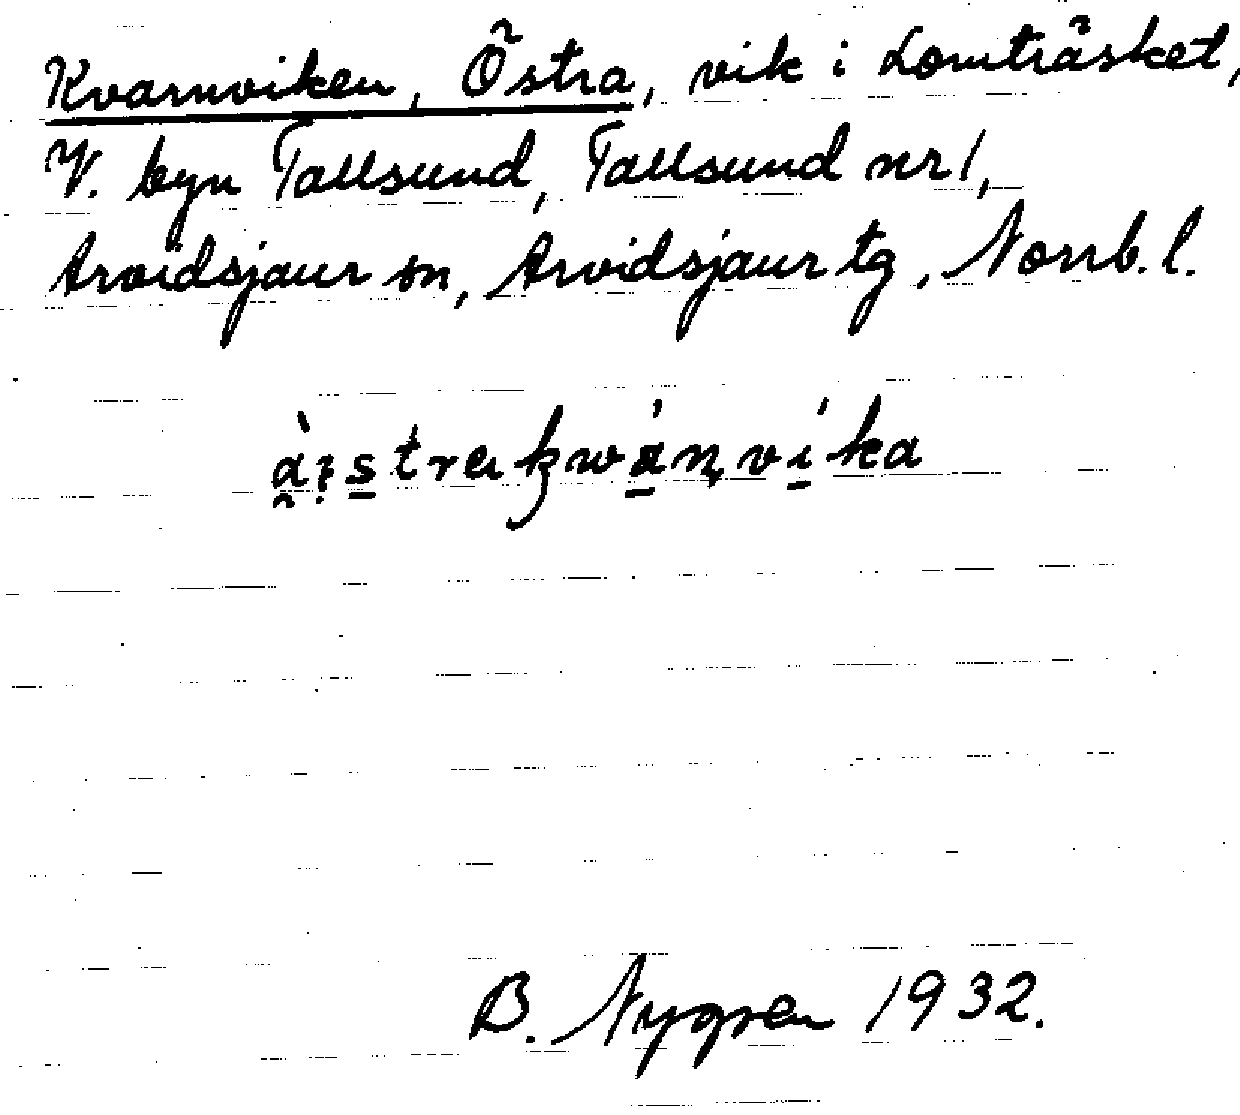 Kvarnviken, Östra, vik i Lomträsket,
V. byn Tallsund, Tallsund nr 1,
Arvidsjaur sn, Arvidsjaur tg, Norrb. l.
B. Nygren 1932.